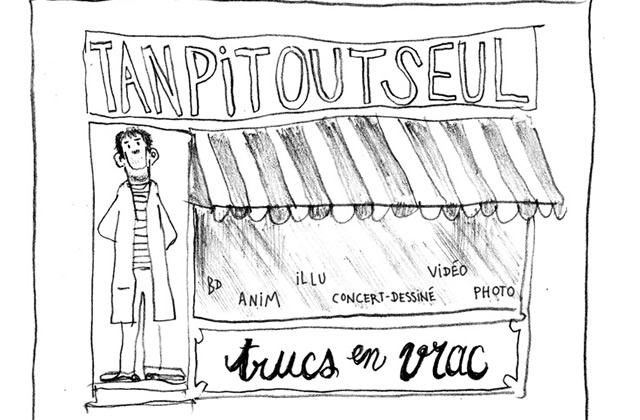 TANPiTOUTSEUL
BD
ANiM
iLLU
CONCERT-DESSiNÉ
ViDÉO
PHOTO
trucs en vrac